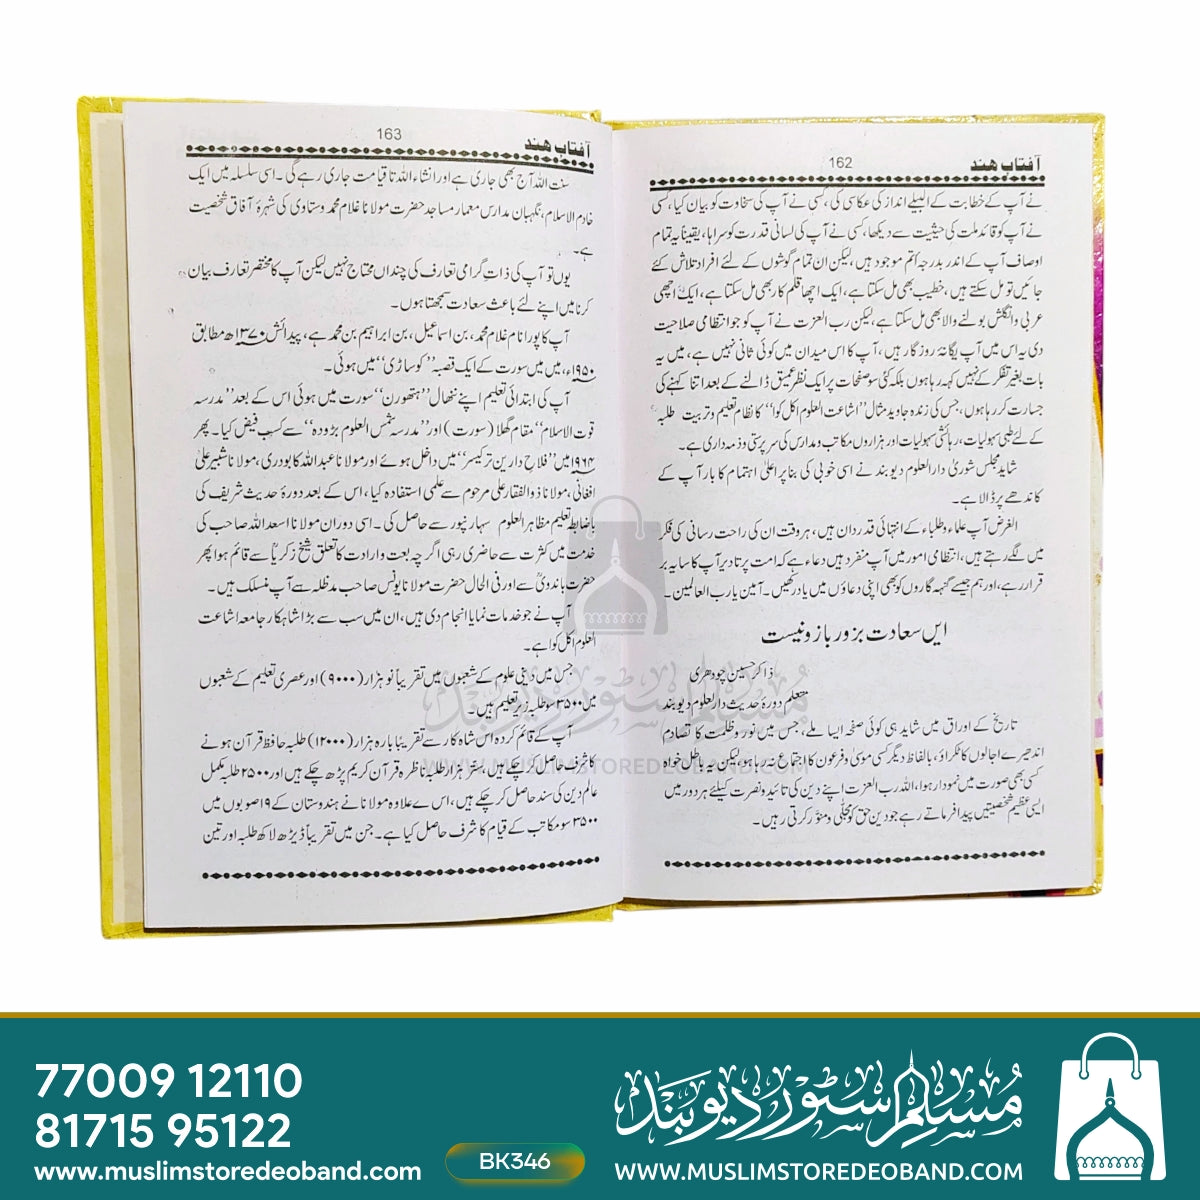 آفتاب ہند
162
نے آپ کے خطابت کے البیلے انداز کی عکاسی کی، کسی نے آپ کی سخاوت کو بیان کیا، کسی
نے آپ کو قائد ملت کی حیثیت سے دیکھا، کسی نے آپ کی لسانی قدرت کو سراہا، یقینا یہ تمام
اوصاف آپ کے اندر بدرجہ اتم موجود ہیں، لیکن ان تمام گوشوں کے لئے افراد تلاش کئے
جائیں تو مل سکتے ہیں، خطیب بھی مل سکتا ہے، ایک اچھا قلم کار بھی مل سکتا ہے، ایک اچھی
عربی وانگلش بولنے والا بھی مل سکتا ہے، لیکن رب العزت نے آپ کو جو انتظامی صلاحیت
دی یہ اس میں آپ یگانہ روزگار ہیں، آپ کا اس میدان میں کوئی ثانی نہیں ہے، میں یہ
بات بغیر تفکر کے نہیں کہہ رہا ہوں بلکہ کئی سو صفحات پر ایک نظر عمیق ڈالنے کے بعد اتنا کہنے کی
جسارت کر رہا ہوں، جس کی زندہ جاوید مثال "اشاعت العلوم اکل کوا" کا نظام تعلیم وتربیت طلبہ
کے لئے طبی سہولیات، رہائشی سہولیات اور ہزاروں مکاتب ومدارس کی سرپرستی وذمہ داری ہے۔
شاید مجلس شوریٰ دارالعلوم دیوبند نے اسی خوبی کی بنا پر اعلیٰ اہتمام کا بار آپ کے
کاندھے پر ڈالا ہے۔
الغرض آپ علماء وطلباء کے انتہائی قدردان ہیں، ہر وقت ان کی راحت رسانی کی فکر
میں لگے رہتے ہیں، انتظامی امور میں آپ منفرد ہیں دعاء ہے کہ امت پر تادیر آپ کا سایہ بر
قرار رہے، اور ہم جیسے گنہہ گاروں کو بھی اپنی دعاؤں میں یاد رکھیں۔ آمین یارب العالمین۔
ایں سعادت بزور بازو نیست
ذاکر حسین چودھری
متعلم دورۂ حدیث دارالعلوم دیوبند
تاریخ کے اوراق میں شاید ہی کوئی صفحہ ایسا ملے، جس میں نور وظلمت کا تصادم
اندھیرے اجالوں کا ٹکراؤ، بالفاظ دیگر کسی موسیٰ وفرعون کا اجتماع نہ رہا ہو، لیکن یہ باطل خواہ
کسی بھی صورت میں نمودار ہوا، اللہ رب العزت اپنے دین کی تائید ونصرت کیلئے ہر دور میں
ایسی عظیم شخصیتیں پیدا فرماتے رہے جو دین حق کو مجلی ومنور کرتی رہیں۔
آفتاب ہند
163
سنت اللہ آج بھی جاری ہے اور انشاء اللہ تا قیامت جاری رہے گی۔ اسی سلسلہ میں ایک
خادم الاسلام، نگہبان مدارس معمار مساجد حضرت مولانا غلام محمد وستاوی کی شہرۂ آفاق شخصیت
ہے۔
یوں تو آپ کی ذات گرامی تعارف کی چنداں محتاج نہیں لیکن آپ کا مختصر تعارف بیان
کرنا میں اپنے لئے باعث سعادت سمجھتا ہوں۔
آپ کا پورا نام غلام محمد، بن اسماعیل، بن ابراہیم بن محمد ہے، پیدائش ۱۳۷۰ھ مطابق
۱۹۵۰ء، میں میں سورت کے ایک قصبہ "کوساڑی" میں ہوئی۔
آپ کی ابتدائی تعلیم اپنے ننھال "ہتھورن" سورت میں ہوئی اس کے بعد "مدرسہ
قوت الاسلام" مقام گھلا (سورت) اور "مدرسہ شمس العلوم بڑودہ" سے کسب فیض کیا۔ پھر
۱۹۶۴ میں "فلاح دارین ترکیسر" میں داخل ہوئے اور مولانا عبداللہ کاپودری، مولانا شبیر علی
افغانی، مولانا ذوالفقار علی مرحوم سے علمی استفادہ کیا، اس کے بعد دورۂ حدیث شریف کی
باضابطہ تعلیم مظاہرالعلوم سہارنپور سے حاصل کی۔ اسی دوران مولانا اسعد اللہ صاحب کی
خدمت میں کثرت سے حاضری رہی اگرچہ بعت وارادت کا تعلق شیخ زکریاؒ سے قائم ہوا پھر
حضرت باندویؒ سے اور فی الحال حضرت مولانا یونس صاحب مدظلہ سے آپ منسلک ہیں۔
آپ نے جو خدمات نمایا انجام دی ہیں، ان میں سب سے بڑا شاہکار جامعہ اشاعت
العلوم اکل کوا ہے۔
جس میں دینی علوم کے شعبوں میں تقریباً نو ہزار (۹۰۰۰) اور عصری تعلیم کے شعبوں
میں ۳۵۰۰ سو طلبہ زیر تعلیم ہیں۔
آپ کے قائم کردہ اس شاہ کار سے تقریبًا بارہ ہزار (۱۲۰۰۰) طلبہ حافظ قرآن ہونے
کا شرف حاصل کر چکے ہیں، ستر ہزار طلبہ ناظرہ قرآن کریم پڑھ چکے ہیں اور ۲۵۰۰ طلبہ مکمل
عالم دین کی سند حاصل کر چکے ہیں، اس ے علاوہ مولانا نے ہندوستان کے ۱۹ صوبوں میں
۳۵۰۰ سو مکاتب کے قیام کا شرف حاصل کیا ہے۔ جن میں تقریباً ڈیڑھ لاکھ طلبہ اور تین
مسلم سٹور دیوبند
WWW.MUSLIMSTOREDEOBAND.COM
77009 12110
81715 95122
www.muslimstoredeoband.com
BK346
مسلم سٹور دیوبند
WWW.MUSLIMSTOREDEOBAND.COM